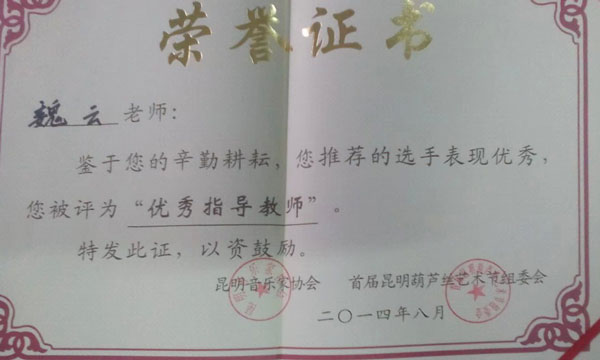 荣誉证书
魏云 老师：
鉴于您的辛勤耕耘，您推荐的选手表现优秀，
您被评为 “优秀指导教师” 。
特发此证，以资鼓励。
昆明音乐家协会 首届昆明葫芦丝艺术节组委会
二〇一四年八月